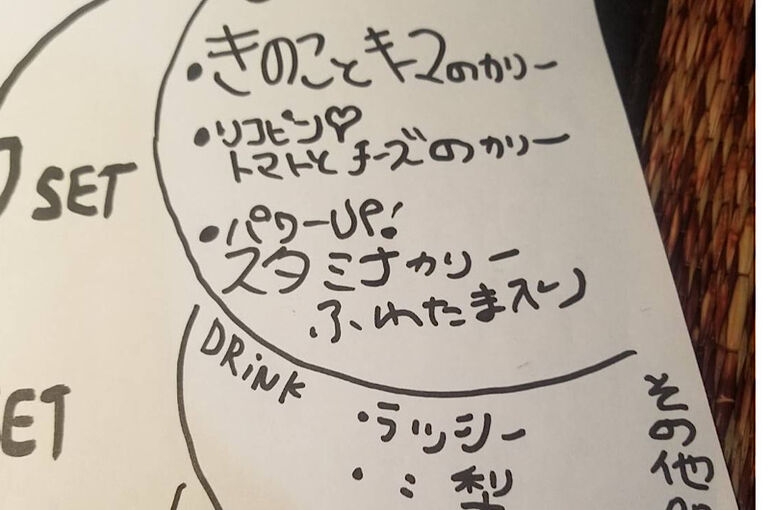 ・きのことキーマのカリー
・リコピン♡
トマトとチーズのカリー
・パワーUP!
スタミナカリー
ふわたま入り
SET
DRiNK
・ラッシー
ET
その他